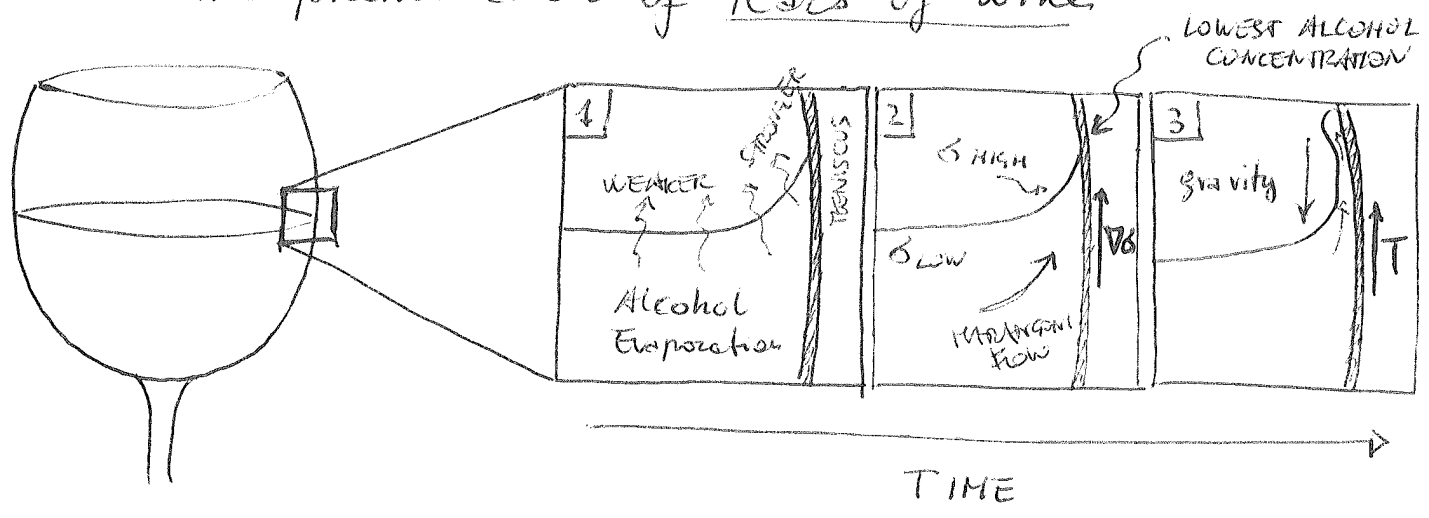 of Tears of wine
LOWEST ALCOHOL
CONCENTRATION
1
WEAKER
STRONGER
MENISCUS
Alcohol
Evaporation
2
σ HIGH
σ LOW
∇σ
MARANGONI
FLOW
3
gravity
T
TIME